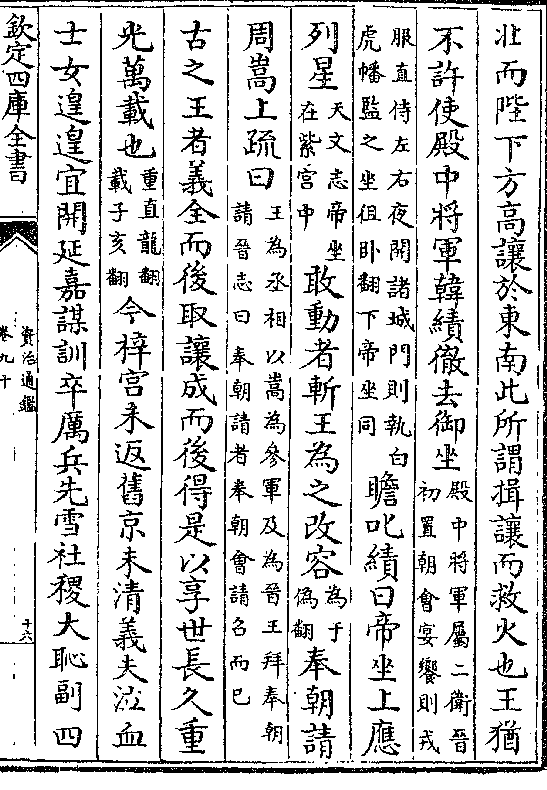 壯而陛下方高讓於東南此所謂揖讓而救火也王猶
不許使殿中將軍韓績徹去御坐殿中將軍屬二衛晉初置朝會宴饗則戎
服直侍左右夜開諸城門則執白虎幡監之坐徂卧翻下帝坐同瞻叱績曰帝坐上應
列星天文志帝坐在紫宮中敢動者斬王為之改容為于偽翻奉朝請
周嵩上疏曰王為丞相以嵩為參軍及為晉王拜奉朝請晉志曰奉朝請者奉朝會請召而已
古之王者義全而後取讓成而後得是以享世長久重
光萬載也重直龍翻載子亥翻今梓宮未返舊京未清義夫泣血
士女遑遑宜開延嘉謀訓卒厲兵先雪社稷大恥副四
欽定四庫全書
資治通鑑
卷九十
十六